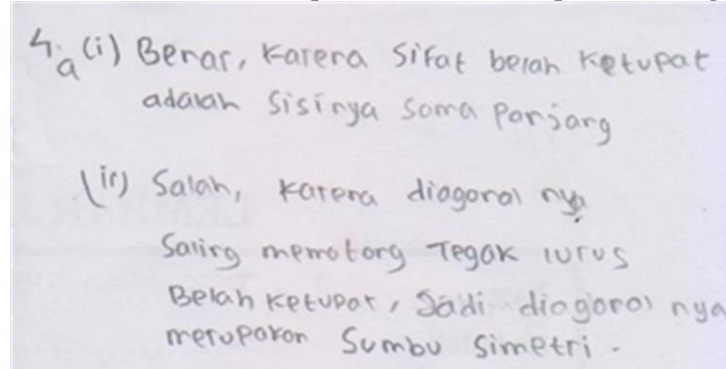 4. a (i) Benar, karena sifat belah ketupat
adalah sisinya sama panjang
(ii) Salah, karena diagonal nya
Saling memotong Tegak lurus
Belah ketupat, Jadi diagonal nya
merupakan Sumbu Simetri.